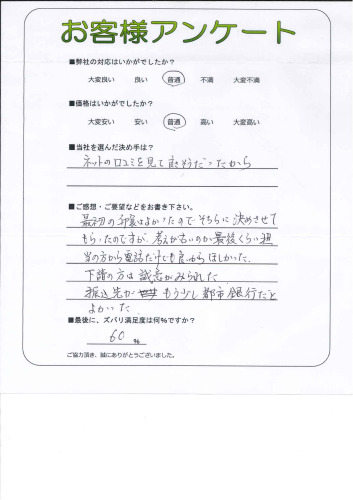 お客様アンケート
■弊社の対応はいかがでしたか？
大変良い 良い 普通 不満 大変不満
■価格はいかがでしたか？
大変安い 安い 普通 高い 大変高い
■当社を選んだ決め手は？
ネットの口コミを見て良さそうだったから
■ご感想・ご要望などをお書き下さい。
最初の印象はよかったのでそちらに決めさせて
もらったのですが、考えが古いのか最後くらい担
当の方から電話だけでも良いからほしかった。
下請の方は誠意がみられた
振込先がもう少し都市銀行だと
よかった
■最後に、ズバリ満足度は何％ですか？
60 ％
ご協力頂き、誠にありがとうございました。